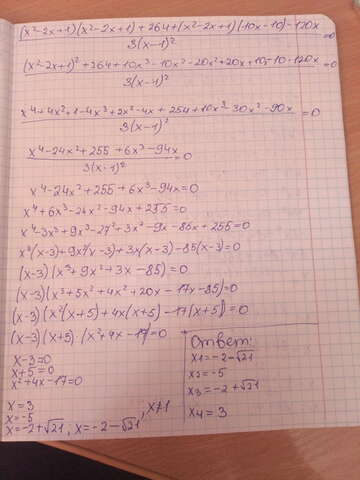 (x²-2x+1)(x²-2x+1)+264+(x²-2x+1)(10x-10)-120x
3(x-1)² =0
(x²-2x+1)²+264+10x³-10x²-20x²+20x+10x-10-120x
3(x-1)² =0
x⁴+4x²+1-4x³+2x²-4x+254+10x³-30x²-90x
3(x-1)² =0
x⁴-24x²+255+6x³-94x
3(x-1)² =0
x⁴-24x²+255+6x³-94x=0
x⁴+6x³-24x²-94x+255=0
x⁴-3x³+9x³-27x²+3x²-9x-85x+255=0
x³(x-3)+9x²(x-3)+3x(x-3)-85(x-3)=0
(x-3)(x³+9x²+3x-85)=0
(x-3)(x³+5x²+4x²+20x-17x-85)=0
(x-3)(x²(x+5)+4x(x+5)-17(x+5))=0
(x-3)(x+5)·(x²+4x-17)=0
x-3=0
x+5=0
x²+4x-17=0
x=3
x=-5
x=-2+√21, x=-2-√21, x≠1
Ответ:
x1=-2-√21
x2=-5
x3=-2+√21
x4=3